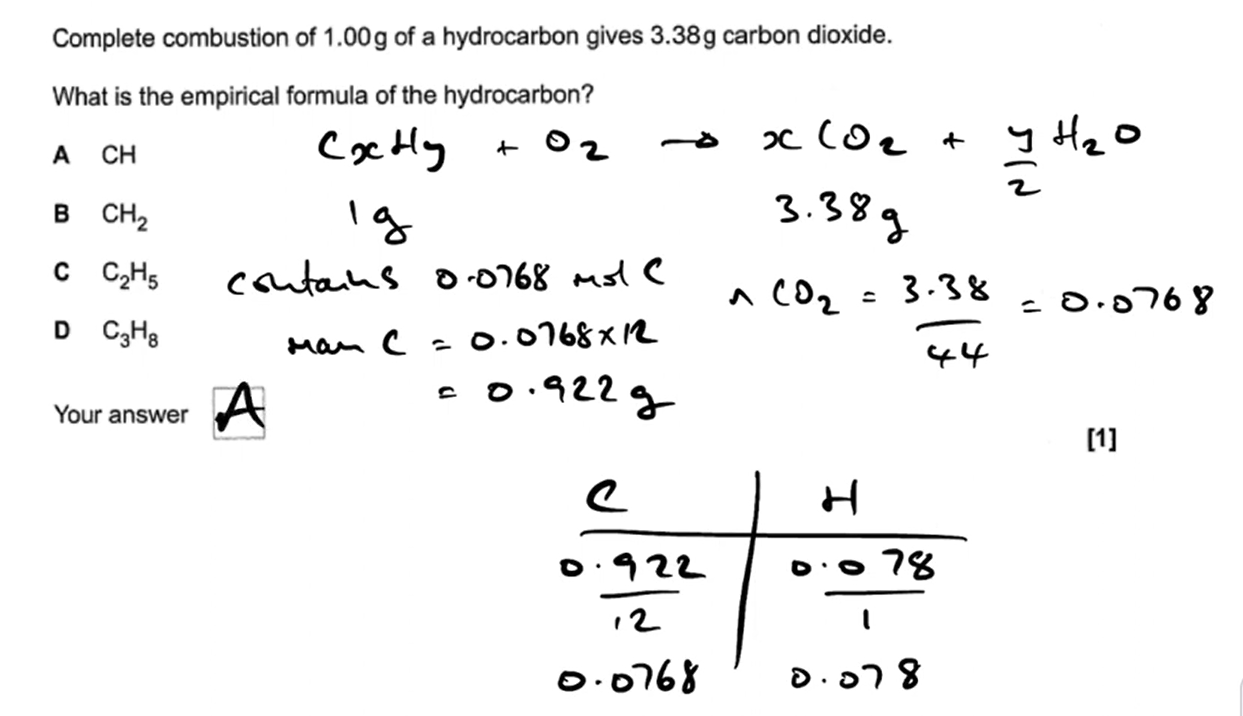 Complete combustion of 1.00 g of a hydrocarbon gives 3.38 g carbon dioxide.
What is the empirical formula of the hydrocarbon?
A CH
B CH₂
C C₂H₅
D C₃H₈
CxHy + O₂ → x CO₂ + y/2 H₂O
1g 3.38g
contains 0.0768 mol C
n CO₂ = 3.38/44 = 0.0768
mass C = 0.0768×12
= 0.922g
Your answer A
[1]
C | H
0.922/12 | 0.078/1
0.0768 0.078